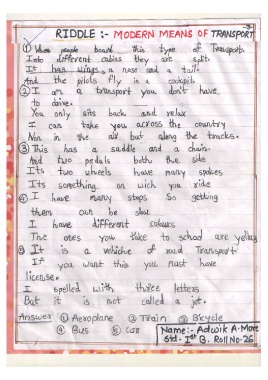 RIDDLE :- MODERN MEANS OF TRANSPORT
① When people board this type of Transport
Into different cabins they are split.
It has wings, a nose and a tail.
And the pilots fly in a cockpit
② I am a transport you don't have
to drive.
You only sits back and relax
I can take you across the country
Non in the air but along the tracks.
③ This has a saddle and a chain.
And two pedals boths the side
Its two wheels have many spokes
Its something on wich you ride
④ I have many stops So getting
them can be slow
I have different colours
The ones you take to school are yellow
⑤ It is a vehiche of road Transport
If you want this you must have
license.
I spelled with three letters
But it is not called a jet.
Answer ① Aeroplane ② Train ③ Bicycle
④ Bus ⑤ Car
Name:- Adwik A. More
Std - Ist B. Roll No-26